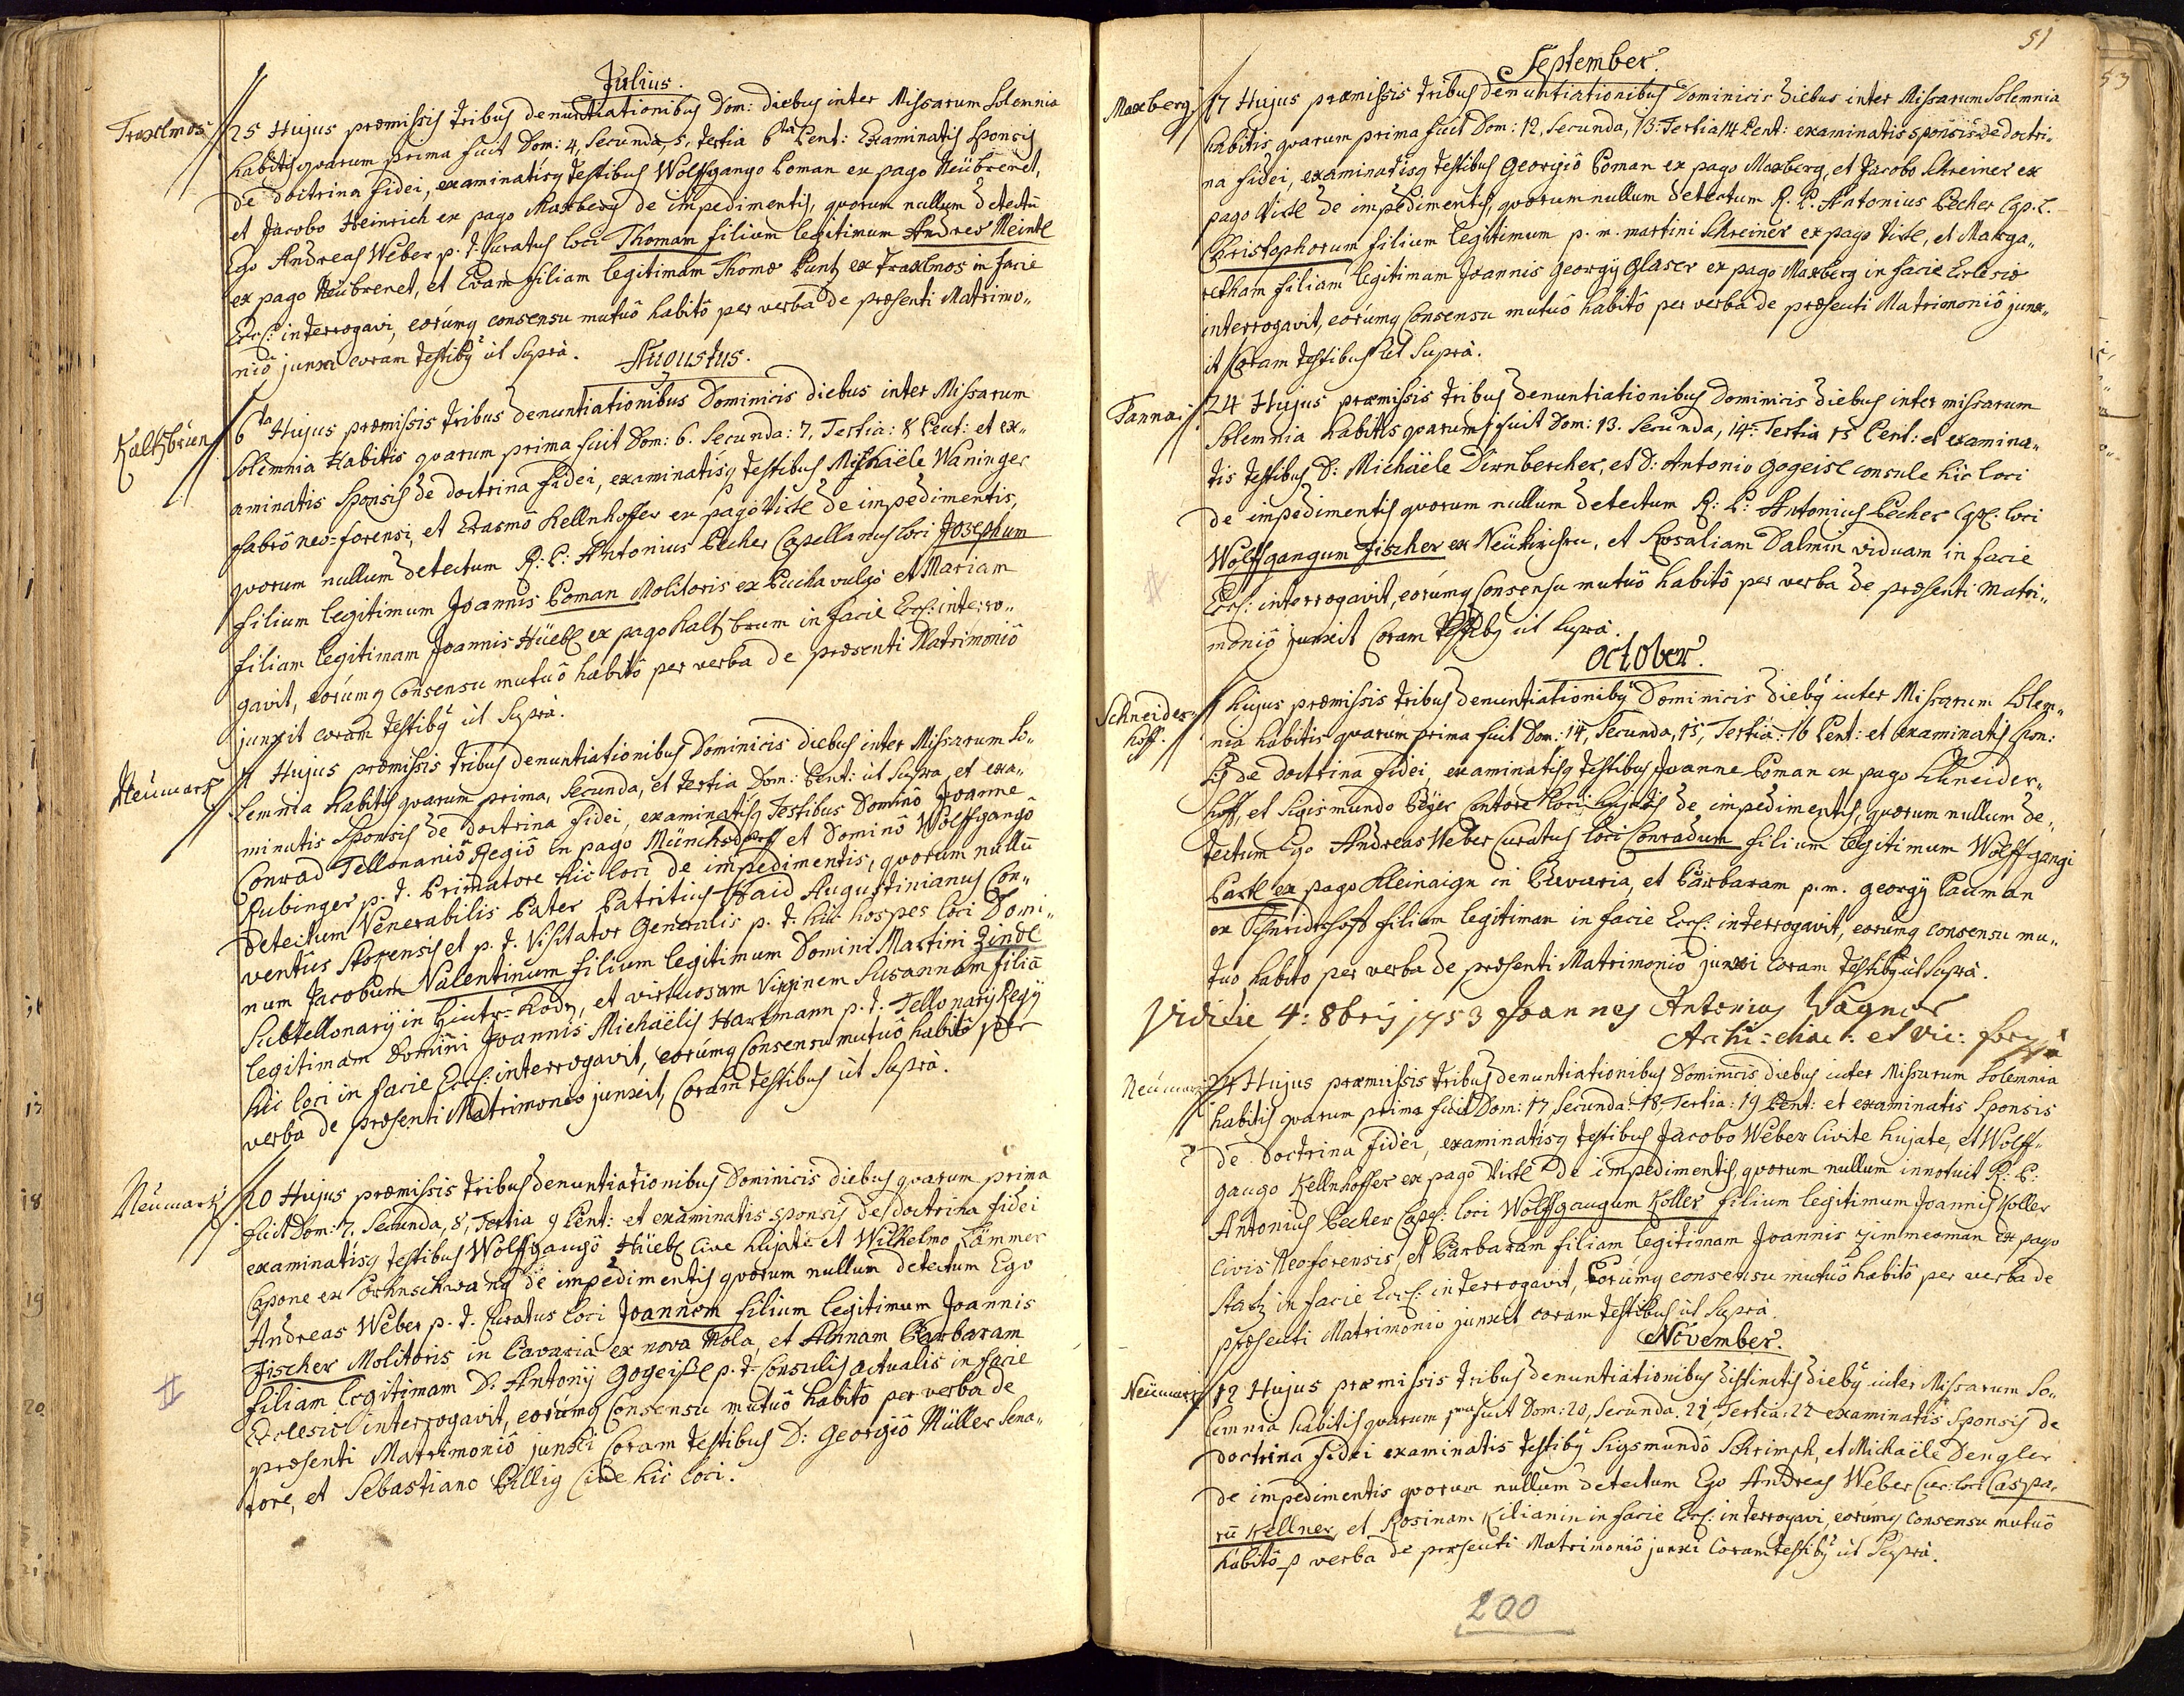 Julius.
Traxlmos
25 Hujus præmissis tribus denuntiationibus Dom: diebus inter Missarum Solemnia
habitis quarum prima fuit Dom: 4, Secunda, 5, tertia 6ta Pent: Examinatis Sponsis
de doctrina fidei, examinatisq testibus Wolffgango Poman ex pago Neübrenet,
et Jacobo Heinrich ex pago Maxberg de impedimentis, quorum nullum detectū
Ego Andreas Weber p. t. Curatus loci Thomam filium legitimum Andreæ Meintl
ex pago Neübrenet, et Evam filiam legitimam Thomæ Puntz ex Traxlmos in facie
Eccl: interrogavi, eorúmq consensu mutuô habitô per verba de præsenti Matrimo,,
niô junxi coram testibq út Suprà.
Augustus.
Kaltzbrün
6ta Hujus præmissis tribus denuntiationibus Dominicis diebus inter Missarum
Solemnia Habitis quarum prima fuit Dom: 6. Secunda: 7, Tertia: 8 Pent: et ex,,
aminatis Sponsis de doctrina fidei, examinatisq testibus Michaële Waninger
fabrô neo=forensi, et Erasmô Kellnhoffer ex pagô Vitl de impedimentis,
quorum nullum detectum R: P: Antonius Pecher Capellanus loci Josephum
filium legitimum Joannis Poman Molitoris ex Pucha vulgò et Mariam
filiam legitimam Joannis Hüebl ex pago Kaltzbrum in facie Eccl: interro,,
gavit, eorúmq Consensu mutuô habitô per verba de præsenti Matrimoniô
junxit coram testibq út Suprà.
Neümarck
7 Hujus præmissis tribus denuntiationibus Dominicis diebus inter Missarum So,,
lemnia habitis quarum prima, Secunda, et tertia Dom: Pent: út Supra et exa,,
minatis Sponsis de doctrina fidei, examinatisq Testibus Dominô Joanne
Conrad Tellonariô Regiô in pago Münchsdorff et Dominô Wolffgangô
Rubinger p. t. Primatore hîc loci de impedimentis, quorum nullū
detectum Venerabilis Pater Patritius Haid Augustinianus Con,,
ventûs Stocensis et p. t. Visitator Generalis p. t. hîc hospes loci Domi,,
num Jacobum Valentinum filium legitimum Domini Martini Zindl
Subtellonarij in Hintr=Kodn, et virtuosam Virginem Susannam filiā
legitimam Domini Joannis Michaëlis Hartmann p. t. Tellonarij Regij
hîc loci in facie Eccl: interrogavit, eorúmq Consensu mutuô habitô per
verba de præsenti Matrimonio junxit, Coram testibus út Suprà.
Neümarck
20 Hujus præmissis tribus denuntiationibus Dominicis diebus quarum prima
fuit Dom: 7, Secunda, 8, Tertia 9 Pent: et examinatis sponsis de doctrina fidei
examinatisq testibus Wolffgangô Hüebl Cive hujate et Wilhelmo Lämmer
Capone ex Pornschwang de impedimentis quorum nullum detectum Ego
Andreas Weber p. t. Curatus loci Joannem filium legitimum Joannis
Fischer Molitoris in Bavaria ex nova Mola, et Annam Barbaram
filiam legitimam D: Antonij Gogeißl p. t. Consulis actualis in facie
Ecclesiæ interrogavit, eorúmq Consensu mutuô habitô per verba de
præsenti Matrimoniô junxi Coram testibus D: Georgiô Müller Sena,,
tore, et Sebastiano Pillig Cive hîc loci.
51
September.
Maxberg
17 Hujus præmissis tribus denuntiationibus Dominicis diebus inter Missarum Solemnia
habitis quarum prima fuit Dom: 12, Secunda, 13. Tertia 14 Pent: examinatis sponsis de doctri,,
na fidei, examinatisq testibus Georgiô Poman ex pago Maxberg, et Jacobo Schreiner ex
pago Vitl de impedimentis, quorum nullum detectum R. P. Antonius Pecher Cap. l.
Christophorum filium legitimum p. m. Martini Schreiner ex pago Vitl, et Marga,,
retham filiam legitimam Joannis Georgij Glaser ex pago Maxberg in facie Eclesiæ
interrogavit, eorúmq Consensu mutuô habitô per verba de præsenti Matrimoniô junx,,
it Coram testibus út Suprà.
Tanna
24 Hujus præmissis tribus denuntiationibus Dominicis diebus inter missarum
Solemnia habitis quarum 1 fuit Dom: 13. Secunda, 14. Tertia 15 Pent: et examina,,
tis testibus D: Michaële Dirnbercher, et D: Antonio Gogeisl consule hîc loci
de impedimentis quorum nullum detectum R: P: Antonius Pecher Cap: loci
Wolffgangum Fischer ex Neükirchen, et Rosaliam Dalmin viduam in facie
Eccl: interrogavit, eorúmq Consensu mutuô habitô per verba de præsenti Matri,,
moniô junxit Coram testibq út Suprà.
October.
Schneider=
hoff.
1 hujus præmissis tribus denuntiationibq Dominicis diebq inter Missarum Solem,,
nia habitis quarum prima fuit Dom: 14, Secunda, 15, Tertia: 16 Pent: et examinatis Spon:
sis de doctrina fidei, examinatisq testibus Joanne Poman ex pago Schneider,,
hoff, et Sigismundo Peÿer Cantore loci hujatis de impedimentis, quorum nullum de,,
tectum Ego Andreas Weber Curatus loci Conradum filium legitimum Wolffgangi
Partl ex pago Kleinaign in Bavaria, et Barbaram p. m. Georgij Pauman
ex Schneidrhoff filiam legitimam in facie Eccl: interrogavit, eorúmq consensu mu,,
tuo habito per verba de præsenti Matrimoniô junxi Coram testibq út Suprà.
Vidi die 4: 8bris 1753 Joannes Antonius Wagner
Archi=diac: et Vic: for
Neümarck
24 Hujus præmissis tribus denuntiationibus Dominicis diebus inter Missarum Solemnia
habitis quarum prima fuit Dom: 17, Secunda: 18, Tertia: 19 Pent: et examinatis Sponsis
de doctrina fidei, examinatisq testibus Jacobo Weber Civite hujate, et Wolff,,
gango Kellnhoffer ex pago Vitl de impedimentis, quorum nullum innotuit R: P:
Antonius Pecher Cap: loci Wolffgangum Koller filium legitimum Joannis Koller
civis Neoforensis, et Barbaram filiam legitimam Joannis Zimmerman ex pago
Statz in facie Eccl: interrogavit, Eorúmq consensu mutuô habitô per verba de
præsenti Matrimonio junxit coram testibus út Suprà.
November.
Neümarck
12 Hujus præmissis tribus denuntiationibus distinctis diebq inter Missarum So,,
lemnia habitis quarum pma fuit Dom: 20, Secunda. 21 Tertia: 22 examinatis Sponsis de
doctrina fidei examinatis testibq Sigsmundô Schrimph, et Michaële Dengler
de impedimentis quorum nullum detectum Ego Andreas Weber Cur: loci Caspa,,
rū Kellner, et Rosinam Kilianin in facie Eccl: interrogavi, eorúmq Consensu mutuô
habitô p verba de præsenti Matrimoniô junxi Coram testibq út Suprà.
200
53